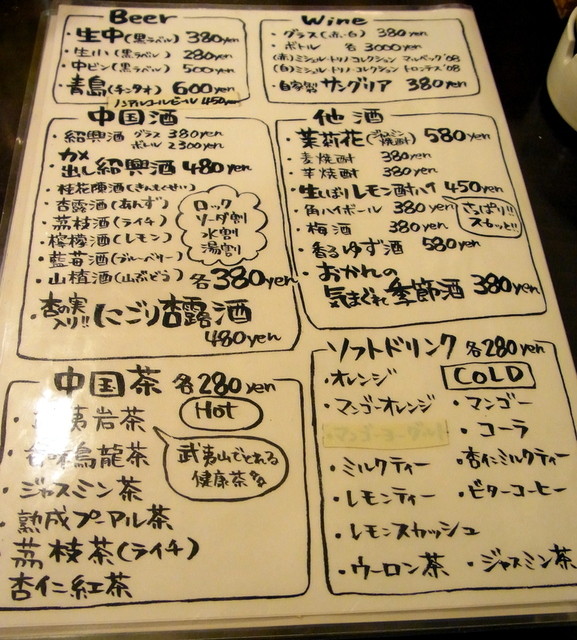 Beer
・生中(黒ラベル) 380yen
・生小(黒ラベル) 280yen
・中ビン(黒ラベル) 500yen
・青島(チンタオ) 600yen
ノンアルコールビール 450yen
Wine
・グラス(赤・白) 380yen
・ボトル 各 3000yen
(赤)ミシェルトリノ・コレクション マルベック'08
(白)ミシェルトリノ・コレクション トロンテス'08
・自家製 サングリア 380yen
中国酒
・紹興酒 グラス 380yen
ボトル 2300yen
カメ出し紹興酒 480yen
・桂花陳酒(きんもくせい)
・杏露酒(あんず)
・茘枝酒(ライチ)
・檸檬酒(レモン)
・藍苺酒(ブルーベリー)
・山楂酒(山ぶどう) 各380yen
ロック
ソーダ割
水割
湯割
・杏の実入り!! にごり杏露酒
480yen
他酒
・茉莉花(ジャスミン焼酎) 580yen
・麦焼酎 380yen
・芋焼酎 380yen
・生しぼりレモン酎ハイ 450yen
さっぱり!!
スカッと!!
・角ハイボール 380yen
・梅酒 380yen
・香るゆず酒 580yen
・おかんの
気まぐれ季節酒 380yen
中国茶 各280yen
Hot
・夷岩茶
武夷山でとれる
健康茶
烏龍茶
・ジャスミン茶
・熟成プーアル茶
・茘枝茶(ライチ)
杏仁紅茶
ソフトドリンク 各280yen
COLD
・オレンジ
・マンゴーオレンジ
・マンゴーヨーグルト
・ミルクティー
・レモンティー
・レモンスカッシュ
・ウーロン茶
・マンゴー
・コーラ
・杏仁ミルクティー
・ビターコーヒー
・ジャスミン茶